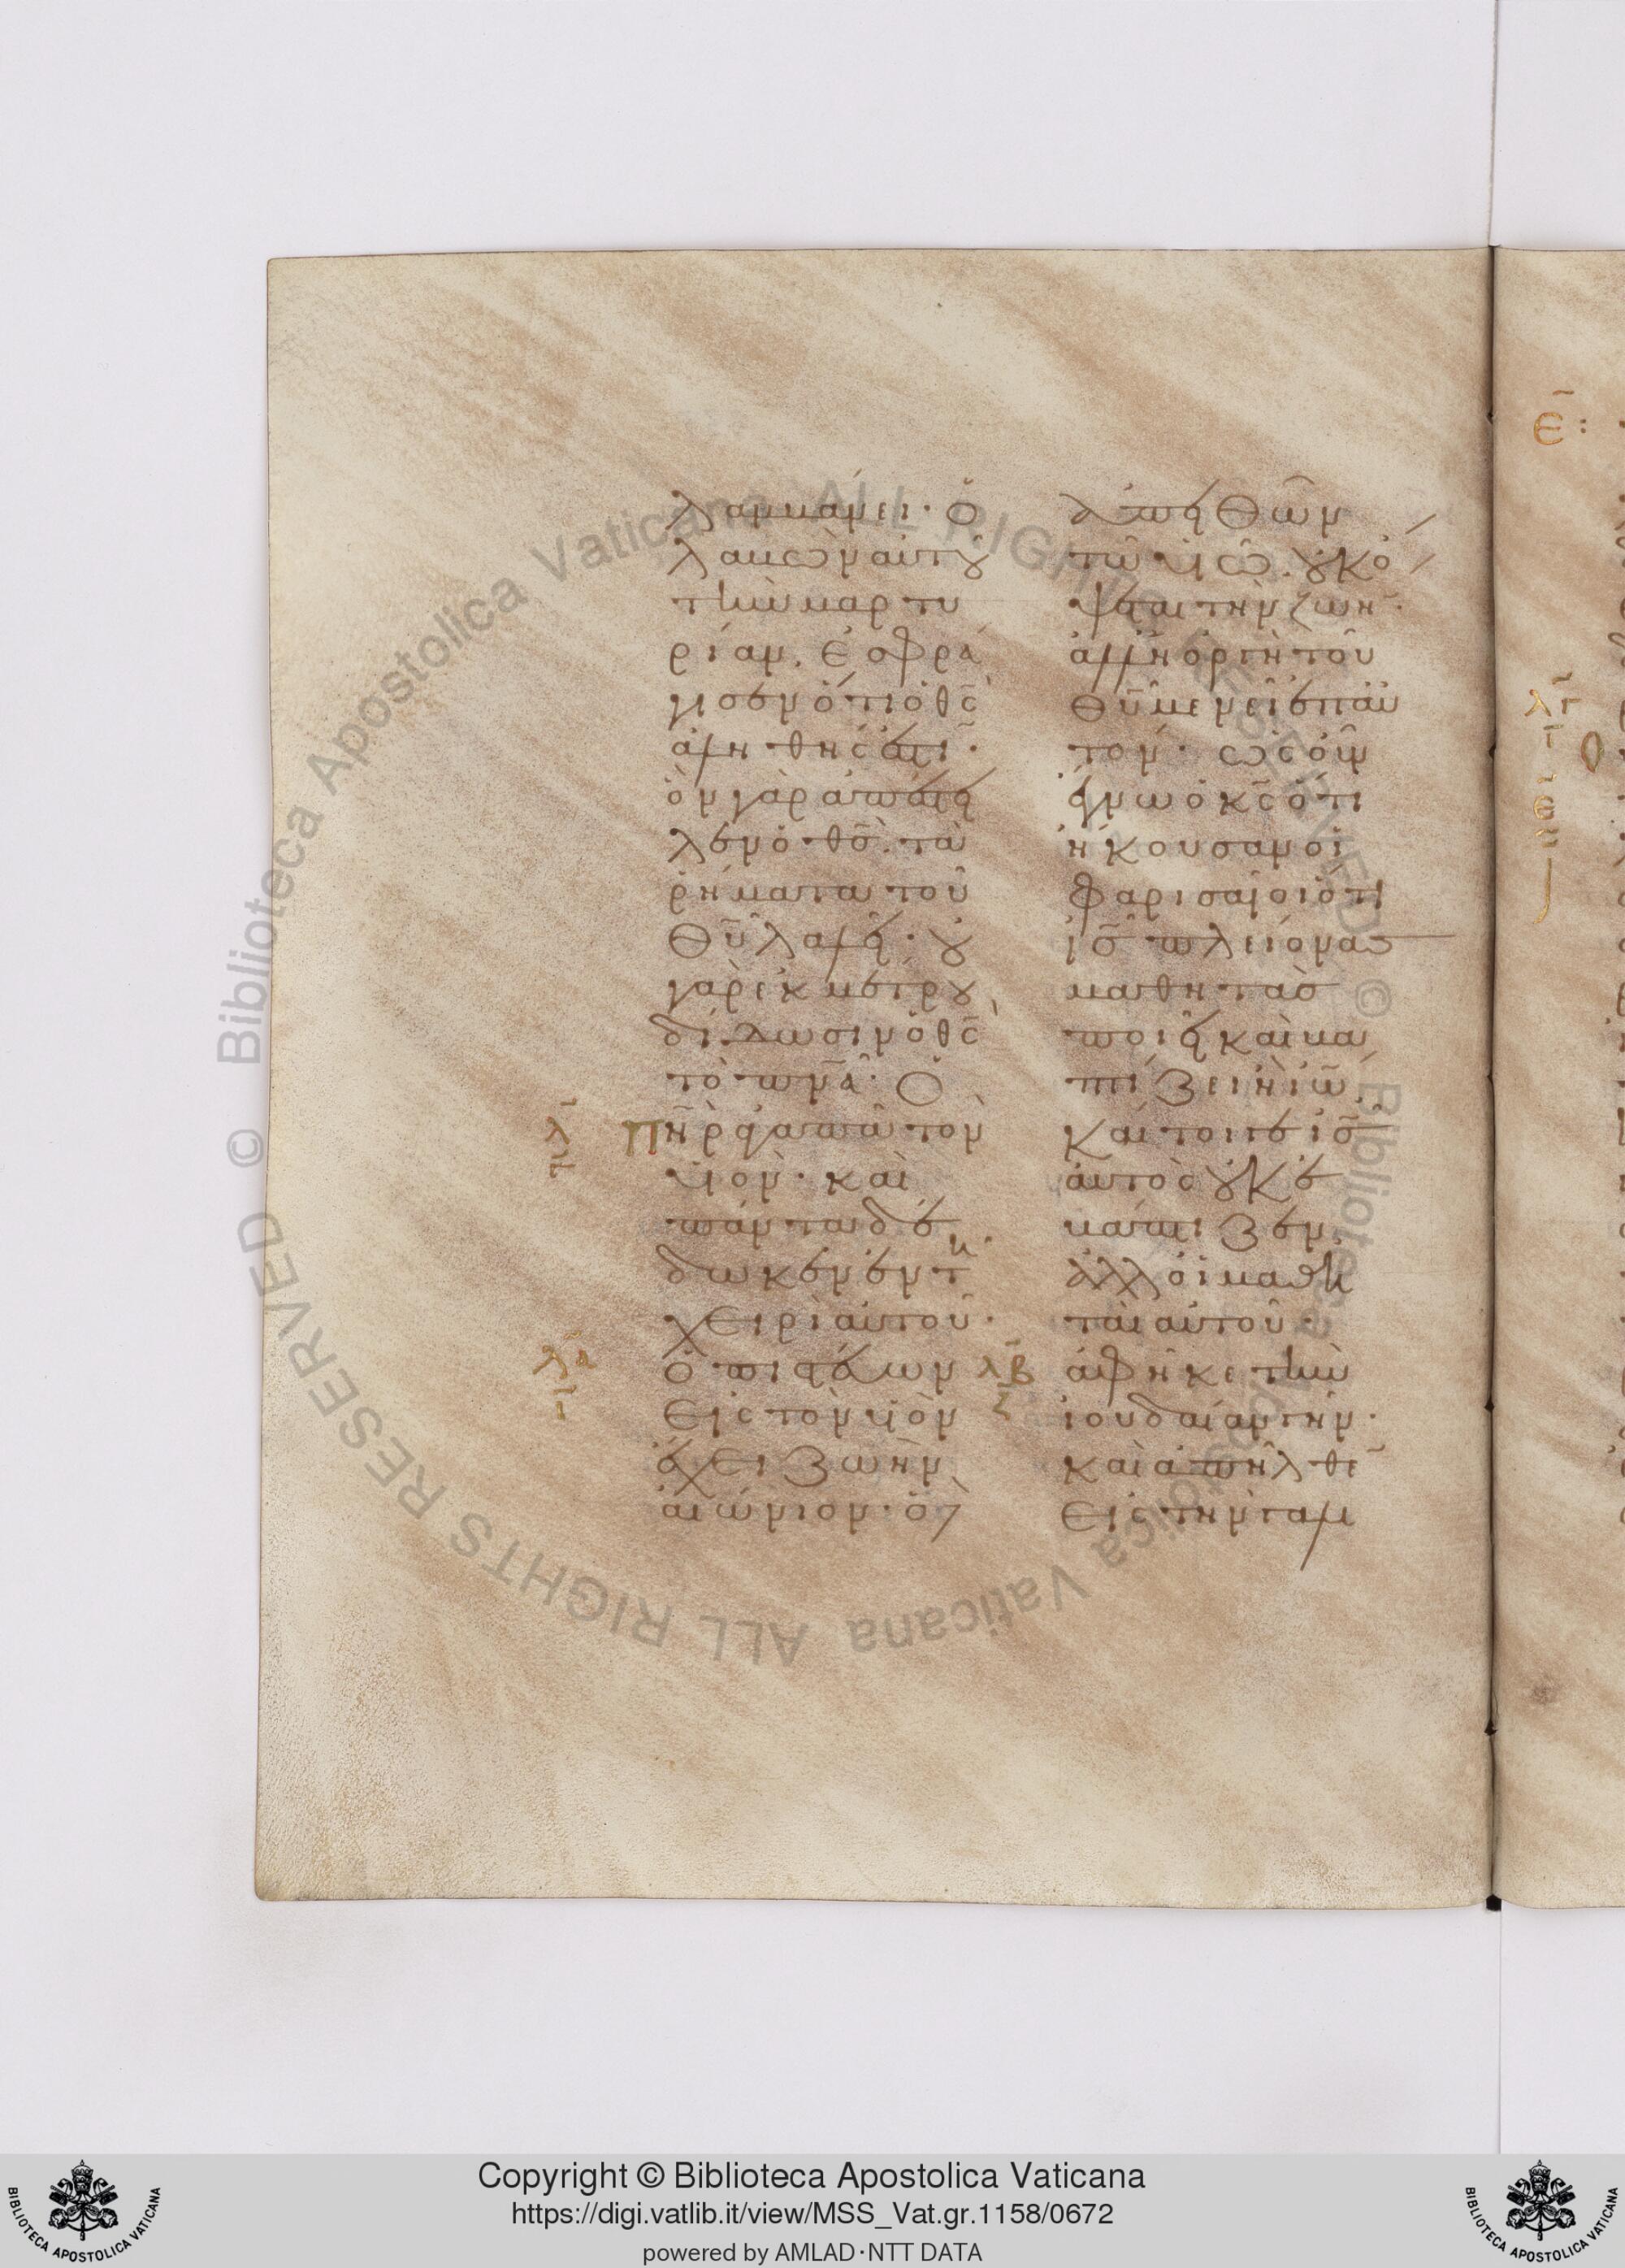 λαμβάνει· ὁ
λαβὼν αὐτοῦ
τὴν μαρτυ
ρίαν, ἐσφρά
γισεν ὅτι ὁ θς
ἀληθής ἐστῑ·
ὃν γὰρ ἀπέστει
λεν ὁ θς̄. τὰ
ῥήματα τοῦ
θῡ λαλεῖ· οὐ
γὰρ ἐκ μέτρου
δίδωσιν ὁ θς̄
τὸ πνᾱ· Ὁ
πη̄ρ ἀγαπᾶ τὸν
υἱόν· καὶ
πάντα δέ
δωκεν ἐν τῆ
χειρὶ αὐτοῦ·
Ὁ πιστεύων
εἰς τὸν υἱὸν
ἔχει ζωὴν
αἰώνιον· ὁ δὲ
ἀπειθῶν
τῶ υἱῶ. οὐκ ὄ
ψεται τὴν ζωήν·
ἀλλ' ἡ ὀργὴ τοῦ
θῡ μένει ἐπ' αὐ
τόν· ὡς οὖν
ἔγνω ὁ κς̄ ὅτι
ἤκουσαν οἱ
φαρισαῖοι ὅτι
ις̄ πλείονας
μαθητὰς
ποιεῖ καὶ βα
πτίζει ἢ ιω̄,
καίτοιγε ις̄
αὐτὸς οὐκ ἐ
βάπτιζεν,
ἀλλ' οἱ μαθη
ταὶ αὐτοῦ·
ἀφῆκε τὴν
ἰουδαίαν γῆν·
καὶ ἀπῆλθε̄
εἰς τὴν γαλι
λ̄
γ
λ̄α
ι
λ̄β
ζ
ε̄:
λ̄γ
Copyright © Biblioteca Apostolica Vaticana
https://digi.vatlib.it/view/MSS_Vat.gr.1158/0672
powered by AMLAD·NTT DATA
BIBLIOTECA APOSTOLICA VATICANA
BIBLIOTECA APOSTOLICA VATICANA
© Biblioteca Apostolica Vaticana ALL RIGHTS RESERVED
© Biblioteca Apostolica Vaticana ALL RIGHTS RESERVED